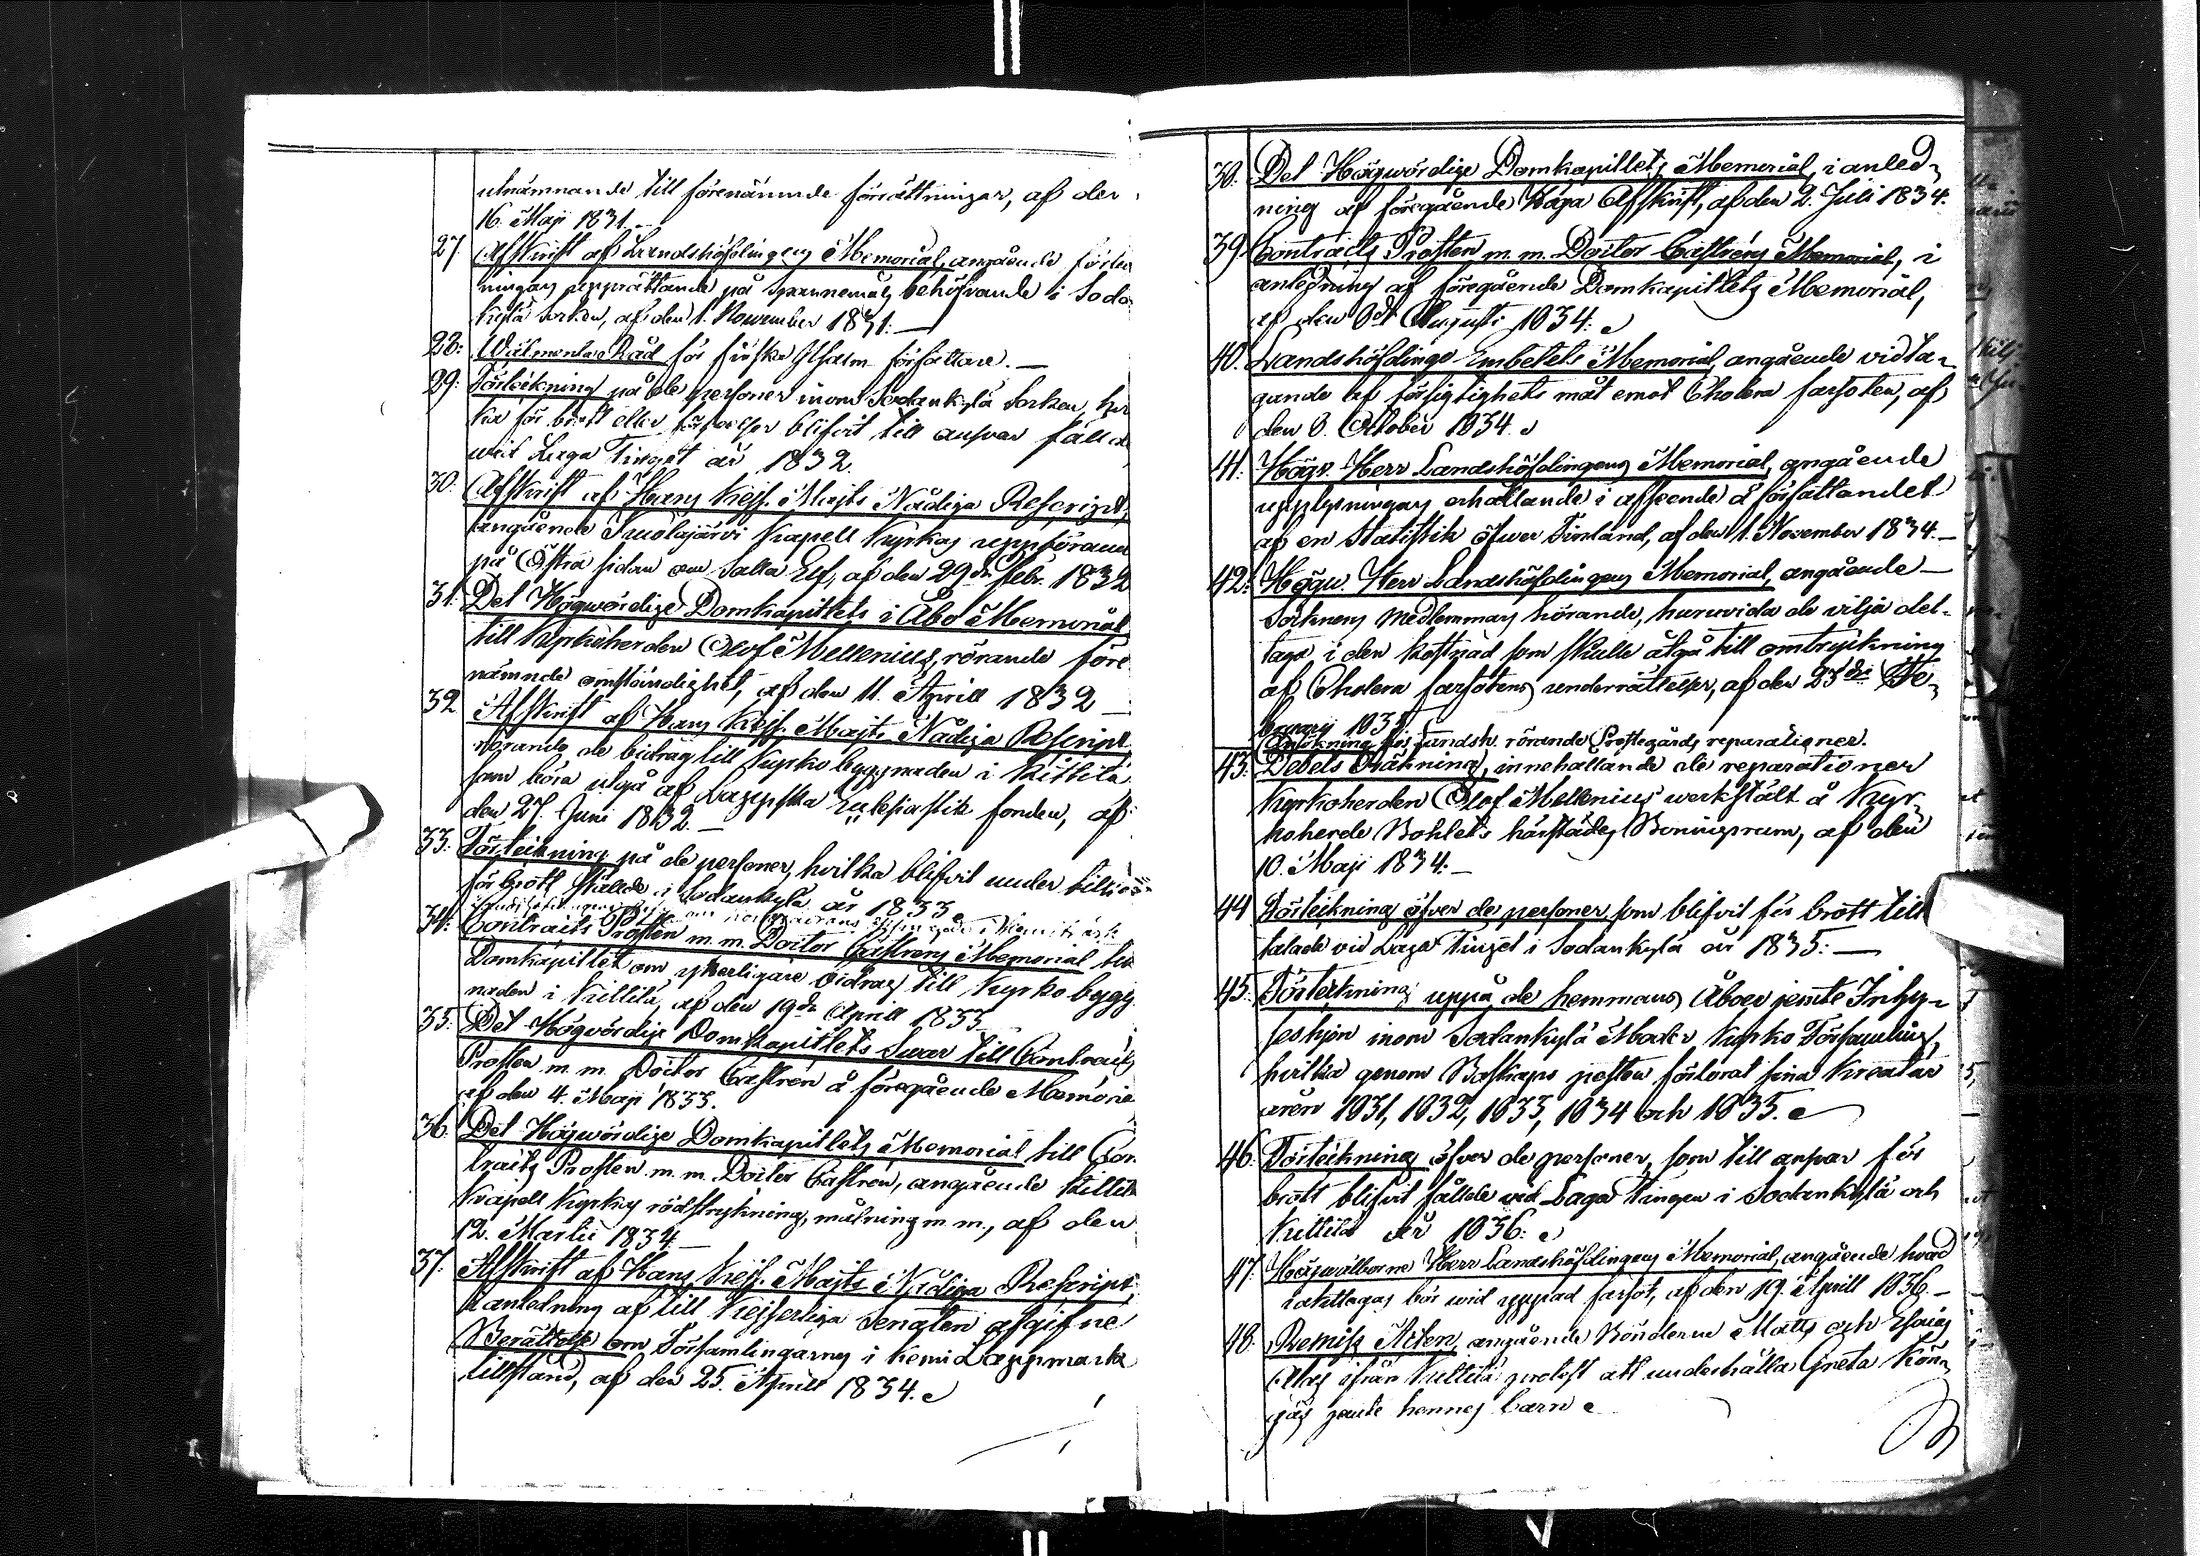 utnämnande till förenämnde förrättningar, af den
16. Maji 1831.
27. Afskrift af Landshöfdingens Memorial, angående
ningars upprättande på spannemåls behöfvande i Soda
kylä Socken, af den 1. November 1831. —
28: Wälmenta Råd för författare. —
29: Förteckning på de personer inom Sodankylä Socken, hvil
ka för brott eller förseelser blifvit till ansvar fällde
wid Laga Tinget år 1832.
30. Afskrift af Hans Kejs. Majts Nådiga Rescript,
angående Kuolajärvi Kapell Kyrkas uppförand
på Östra sidan om Salla Elf, af den 29de Febr. 1832
31. Det Högwördige Domkapitlets i Åbo Memorial
till Kyrkoherden Olof Mellenius, rörande före
nämnde omständighet, af den 11. Aprill 1832 —
32 Afskrift af Hans Kejs. Majts Nådiga Rescript
rörande de bidrag till Kyrko byggnaden i Kittilä
som böra utgå af Lappska Ecclesiastik fonden, af
den 27. Juni 1832. —
33: Förteckning på de personer, hvilka blifvit under
för brott ställde i Sodankylä år 1833.
34: Contracts Prosten m. m. Doctor Castréns Memorial till
Domkapitlet om ytterligare bidrag till Kyrko bygg
naden i Kittilä, af den 19de Aprill 1833
35: Det Högwördige Domkapitlets Swar till Contracts
Prosten m. m. Doctor Castrén å föregående Memoria
af den 4. Maji 1833.
36. Det Högwördige Domkapitlets Memorial till Con
tracts Prosten m. m. Doctor Castrén, angående Kittilä
Kapell Kyrkas rödstrykning, målning m. m., af den
12. Martii 1834. —
37. Afskrift af Hans Kejs. Majts Nådiga Rescript,
i anledning af till Kejserliga Senaten afgifne
Berättelse om Församlingarnes i Kemi Lappmark
tillstånd, af den 25. Aprill 1834.
38. Det Högwördige Domkapitlets Memorial, i anled-
ning af föregående höga Afskrift, af den 2. Juli 1834.
39. Contracts Prosten m. m. Doctor Castréns Memorial, i
anledning af föregående Domkapitlets Memorial,
af den Augusti 1834.
40. Landshöfdinge Embetets Memorial, angående vidta-
gande af försigtighets mått emot Cholera farsoten, af
den 8. October 1834.
41. Högv. Herr Landshöfdingens Memorial, angående
upplysningars erhållande i afseende å författandet
af en Statistik öfwer Finland, af den 1. November 1834. —
42: Högw. Herr Landshöfdingens Memorial, angående —
Socknens medlemmars hörande, huruvida de vilja del-
taga i den kostnad som skulle åtgå till omtryckning
af Cholera farsotens underrättelser, af den 23de Fe-
bruarij 1835
Ansökning hos Landsh. rörande Prostegårds reparationer.
43: Debets Räkning, innehållande de reparationer
Kyrkoherden Olof Mellenius werkstält å Kyr-
koherde Bohlets härstädes Boningsrum, af den
10. Maji 1834. —
44 Förteckning öfver de personer som blifvit för brott till
talade vid Laga Tinget i Sodankylä år 1835: —
45. Förteckning uppå de hemmans Åboer jemte Inhy-
seshjon inom Sodankylä Moder Kyrko Församling,
hvilka genom Boskaps pesten förlorat sina Kreatur
åren 1831, 1832, 1833, 1834 och 1835.
46. Förteckning öfver de personer, som till ansvar för
brott blifvit fällde vid Laga Tingen i Sodankylä och
Kittilä år 1836.
47. Högwälborne Herr Landshöfdingens Memorial, angående hvad
iakttagas bör wid yppad farsot, af den 19. Aprill 1836. —
48. Remiss Acten, angående Bönderne Matts och Esaias
ifrån Kittilä protest att underhålla Greta
jemte hennes barn